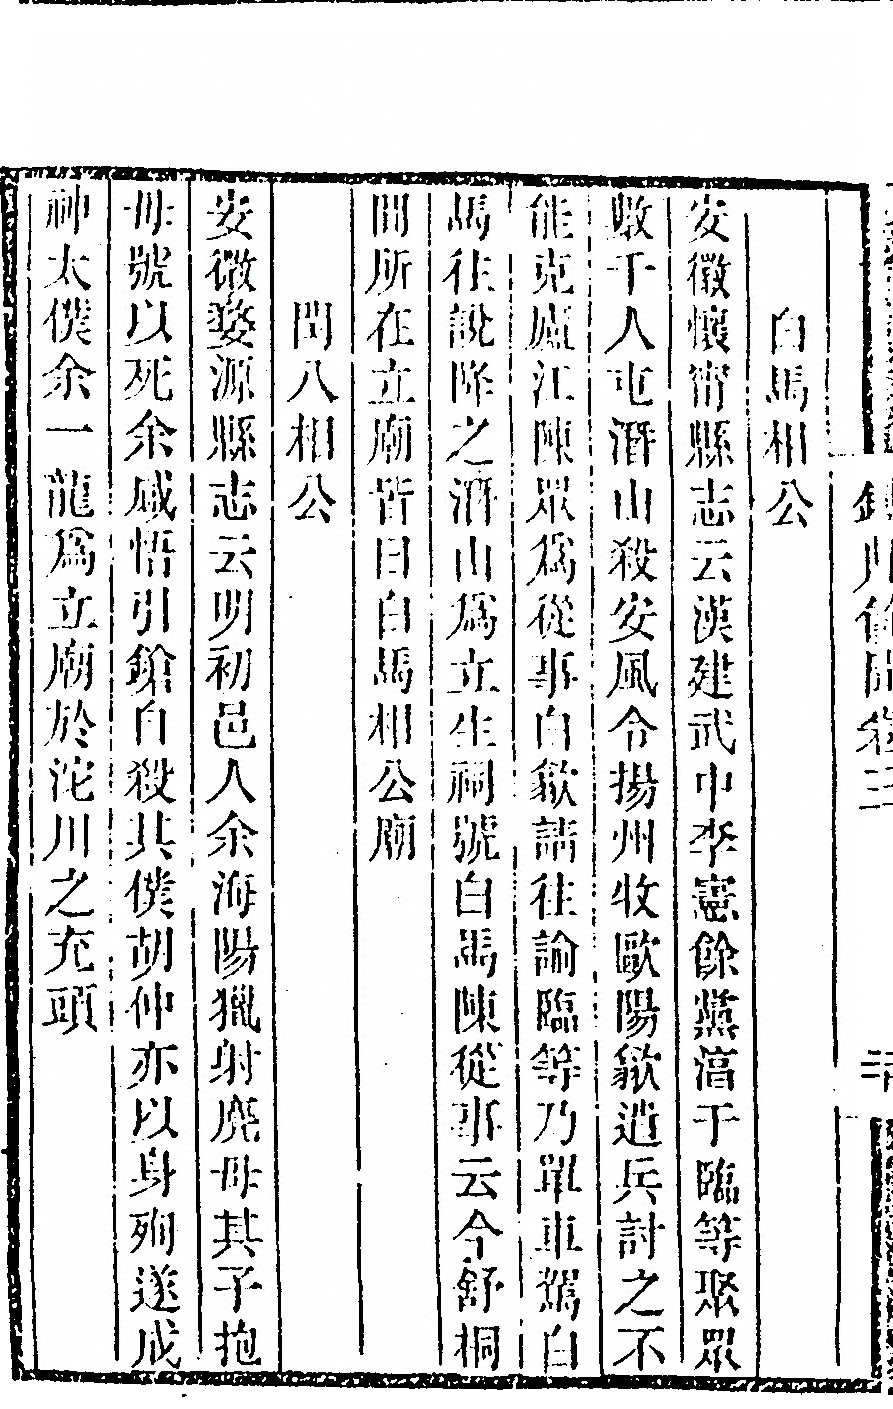 鑄鼎餘聞卷三
白馬相公
安徽懷甯縣志云漢建武中李憲餘黨湻于臨等聚眾
數千人屯潛山殺安風令揚州牧歐陽歙遣兵討之不
能克廬江陳眾爲從事白歙請往諭臨等乃單車駕白
馬往說降之潛山爲立生祠號白馬陳從事云今舒桐
間所在立廟皆曰白馬相公廟
閏八相公
安徽婺源縣志云明初邑人余海陽獵射麂母其子抱
母號以死余感悟引鎗自殺其僕胡仲亦以身殉遂成
神太僕余一龍爲立廟於沱川之充頭